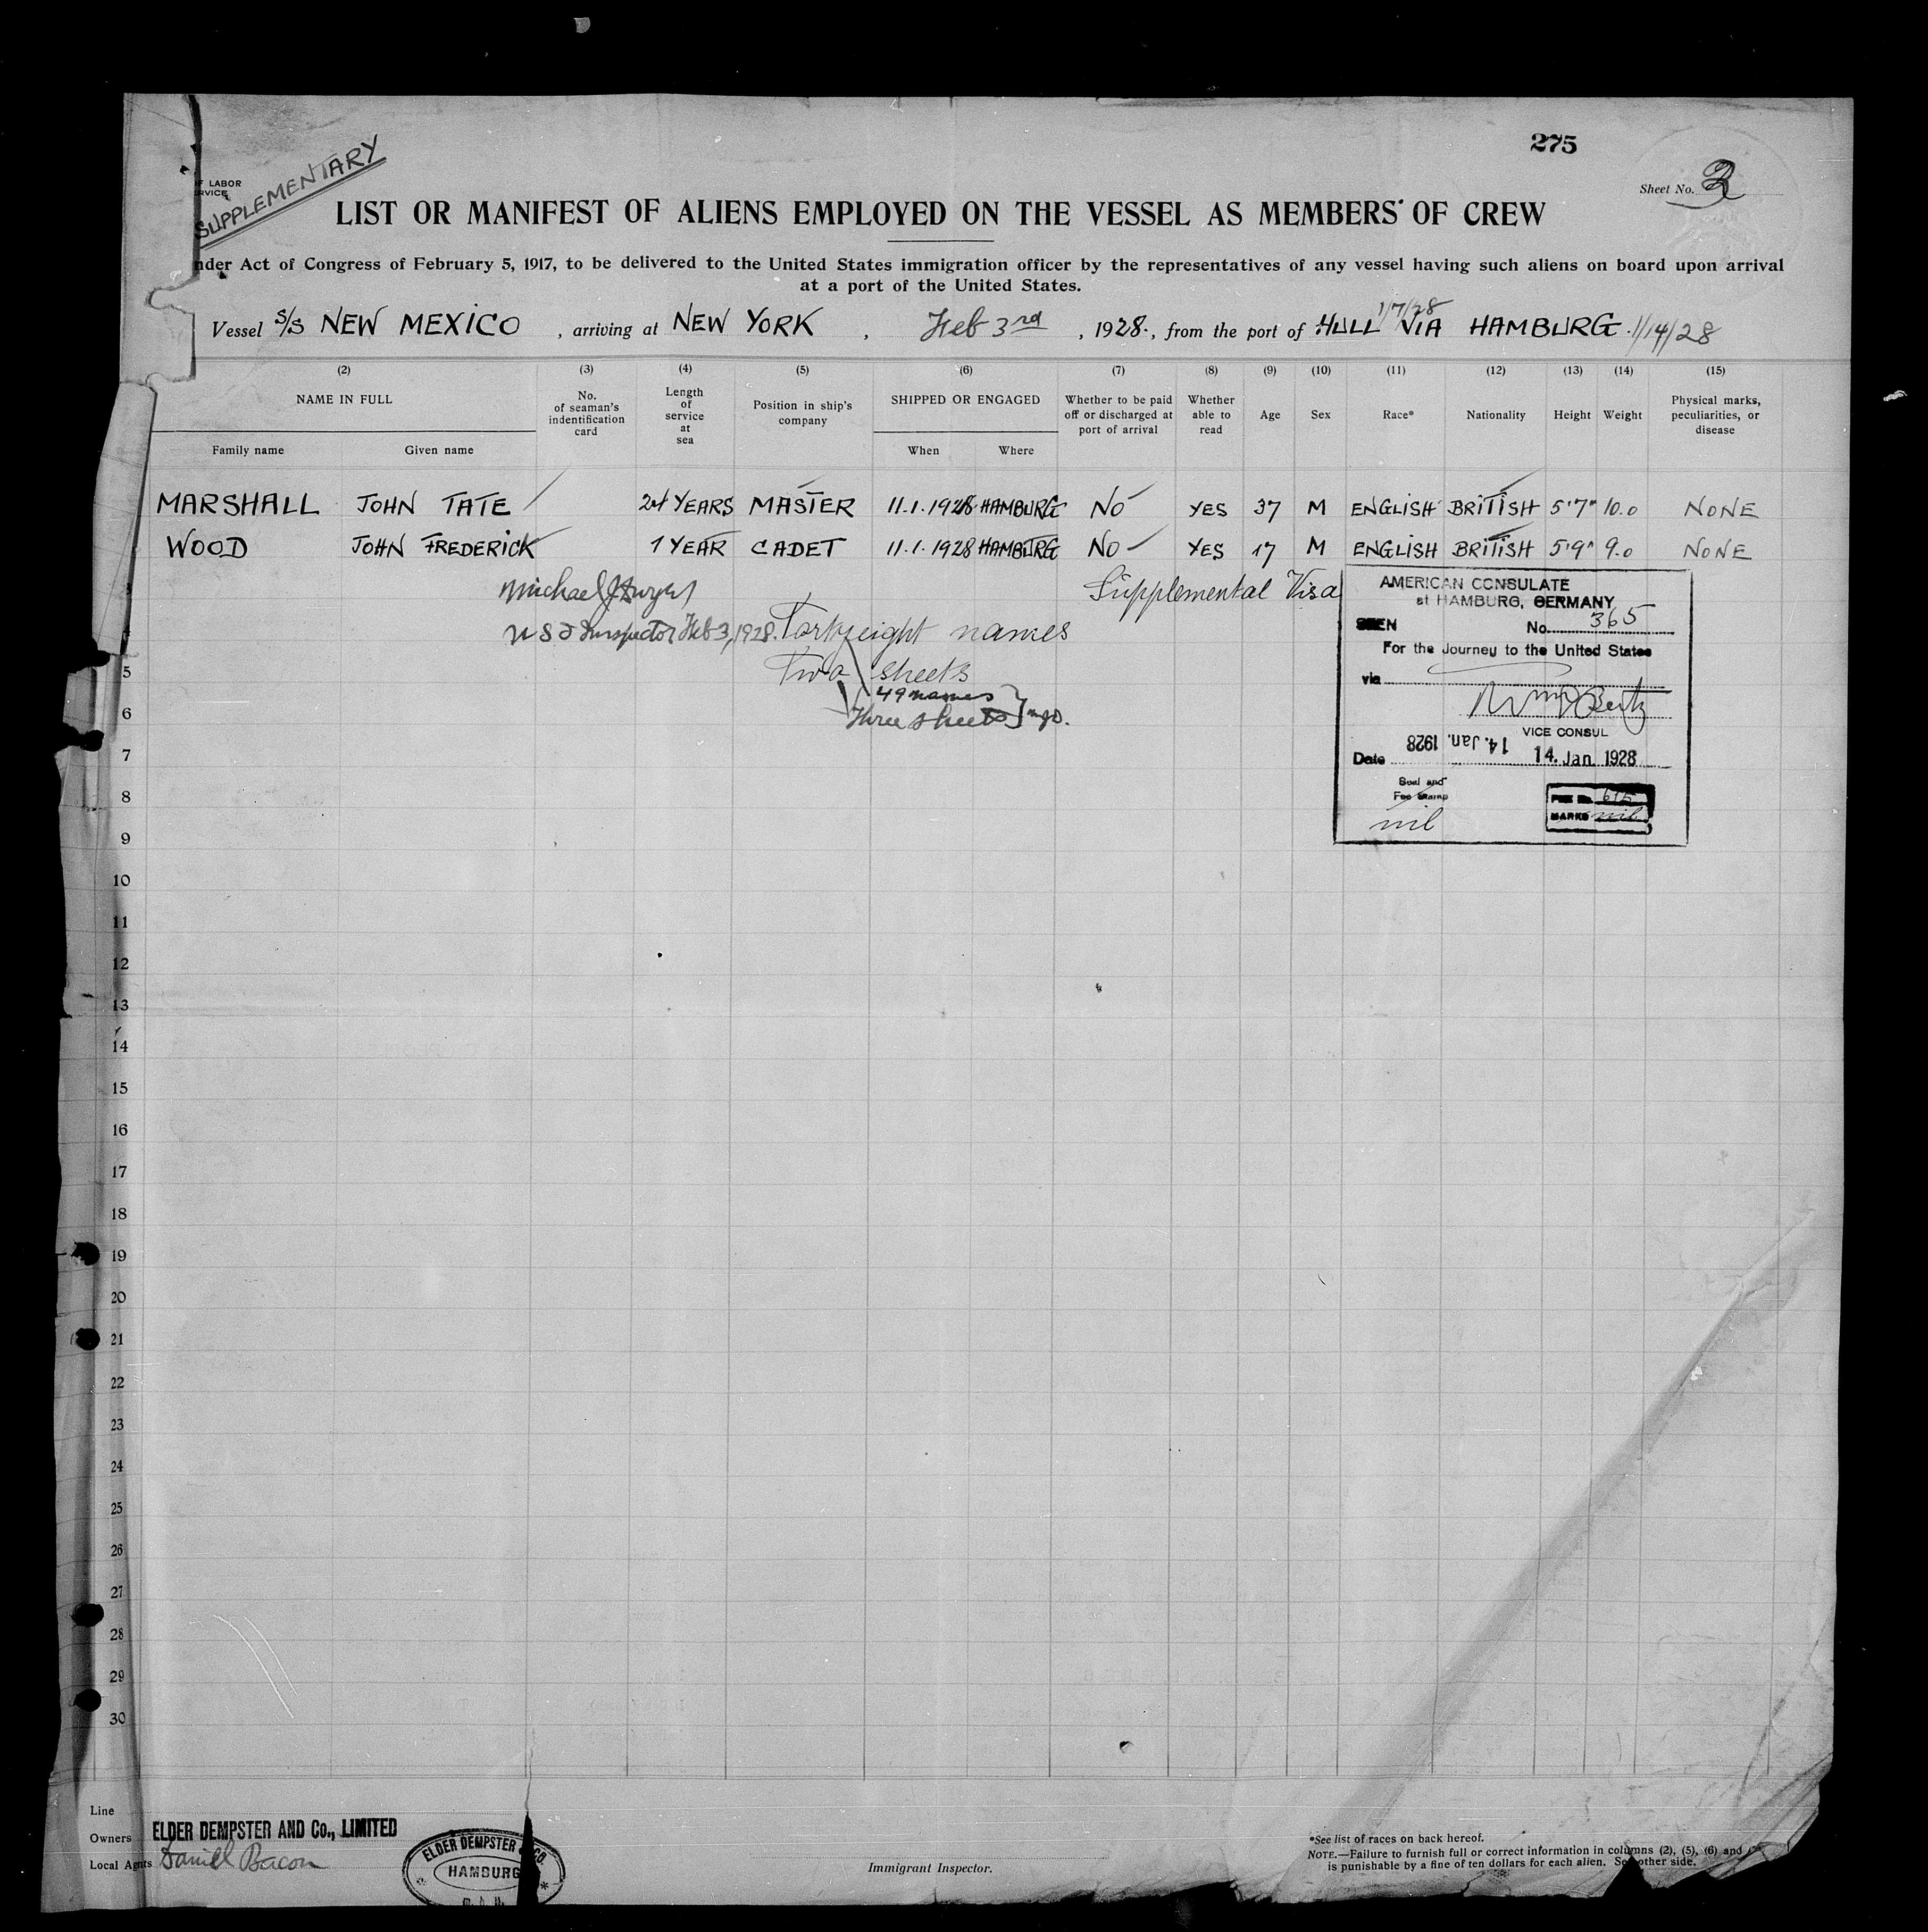 275
SUPPLEMENTARY
F LABOR
RVICE
Sheet No. 3
LIST OR MANIFEST OF ALIENS EMPLOYED ON THE VESSEL AS MEMBERS OF CREW
nder Act of Congress of February 5, 1917, to be delivered to the United States immigration officer by the representatives of any vessel having such aliens on board upon arrival
at a port of the United States.
1/7/28
Vessel S/S NEW MEXICO , arriving at NEW YORK , Feb 3rd , 1928. , from the port of HULL VIA HAMBURG. 1/14/28
(2) (3) (4) (5) (6) (7) (8) (9) (10) (11) (12) (13) (14) (15)
NAME IN FULL
Family name Given name
No. of seaman's indentification card
Length of service at sea
Position in ship's company
SHIPPED OR ENGAGED
When Where
Whether to be paid off or discharged at port of arrival
Whether able to read
Age
Sex
Race*
Nationality
Height
Weight
Physical marks, peculiarities, or disease
MARSHALL JOHN TATE 24 YEARS MASTER 11.1.1928 HAMBURG NO YES 37 M ENGLISH BRITISH 5'7" 10.0 NONE
WOOD JOHN FREDERICK 1 YEAR CADET 11.1.1928 HAMBURG NO YES 17 M ENGLISH BRITISH 5'9" 9.0 NONE
3
Michael J Dwyer
Supplemental Visa
4
U S I Inspector Feb 3, 1928.
Forty eight names
5
Two sheets
49 names
6
Three sheets } MJD.
AMERICAN CONSULATE
at HAMBURG, GERMANY
SEEN No. 365
For the Journey to the United States
via
VICE CONSUL
Date 14. Jan. 1928 14. Jan 1928
Seal and
Fee Stamp
nil
FEE No. 615
MARKS nil
7
8
9
10
11
12
13
14
15
16
17
18
19
20
21
22
23
24
25
26
27
28
29
30
Line
Owners ELDER DEMPSTER AND Co., LIMITED
Local Agnts Daniel Bacon
ELDER DEMPSTER & CO.
HAMBURG
m. b. H.
Immigrant Inspector.
*See list of races on back hereof.
NOTE.—Failure to furnish full or correct information in columns (2), (5), (6) and
is punishable by a fine of ten dollars for each alien. See other side.